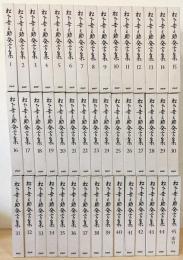 松下幸之助発言集 1
松下幸之助発言集 2
松下幸之助発言集 3
松下幸之助発言集 4
松下幸之助発言集 5
松下幸之助発言集 6
松下幸之助発言集 7
松下幸之助発言集 8
松下幸之助発言集 9
松下幸之助発言集 10
松下幸之助発言集 11
松下幸之助発言集 12
松下幸之助発言集 13
松下幸之助発言集 14
松下幸之助発言集 15
松下幸之助発言集 16
松下幸之助発言集 17
松下幸之助発言集 18
松下幸之助発言集 19
松下幸之助発言集 20
松下幸之助発言集 21
松下幸之助発言集 22
松下幸之助発言集 23
松下幸之助発言集 24
松下幸之助発言集 25
松下幸之助発言集 26
松下幸之助発言集 27
松下幸之助発言集 28
松下幸之助発言集 29
松下幸之助発言集 30
松下幸之助発言集 31
松下幸之助発言集 32
松下幸之助発言集 33
松下幸之助発言集 34
松下幸之助発言集 35
松下幸之助発言集 36
松下幸之助発言集 37
松下幸之助発言集 38
松下幸之助発言集 39
松下幸之助発言集 40
松下幸之助発言集 41
松下幸之助発言集 42
松下幸之助発言集 43
松下幸之助発言集 44
松下幸之助発言集 45